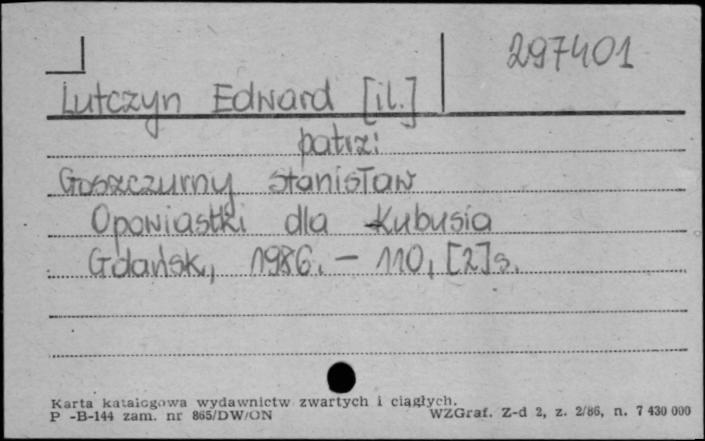 297401
Lutczyn Edward [il.]
patrz:
Goszczurny Stanisław
Opowiastki dla Kubusia
Gdańsk, 1986. - 110, [2] s.
Karta katalogowa wydawnictw zwartych i ciągłych.
P -B-144 zam. nr 865/DW/ON WZGraf. Z-d 2, z. 2/86, n. 7 430 000